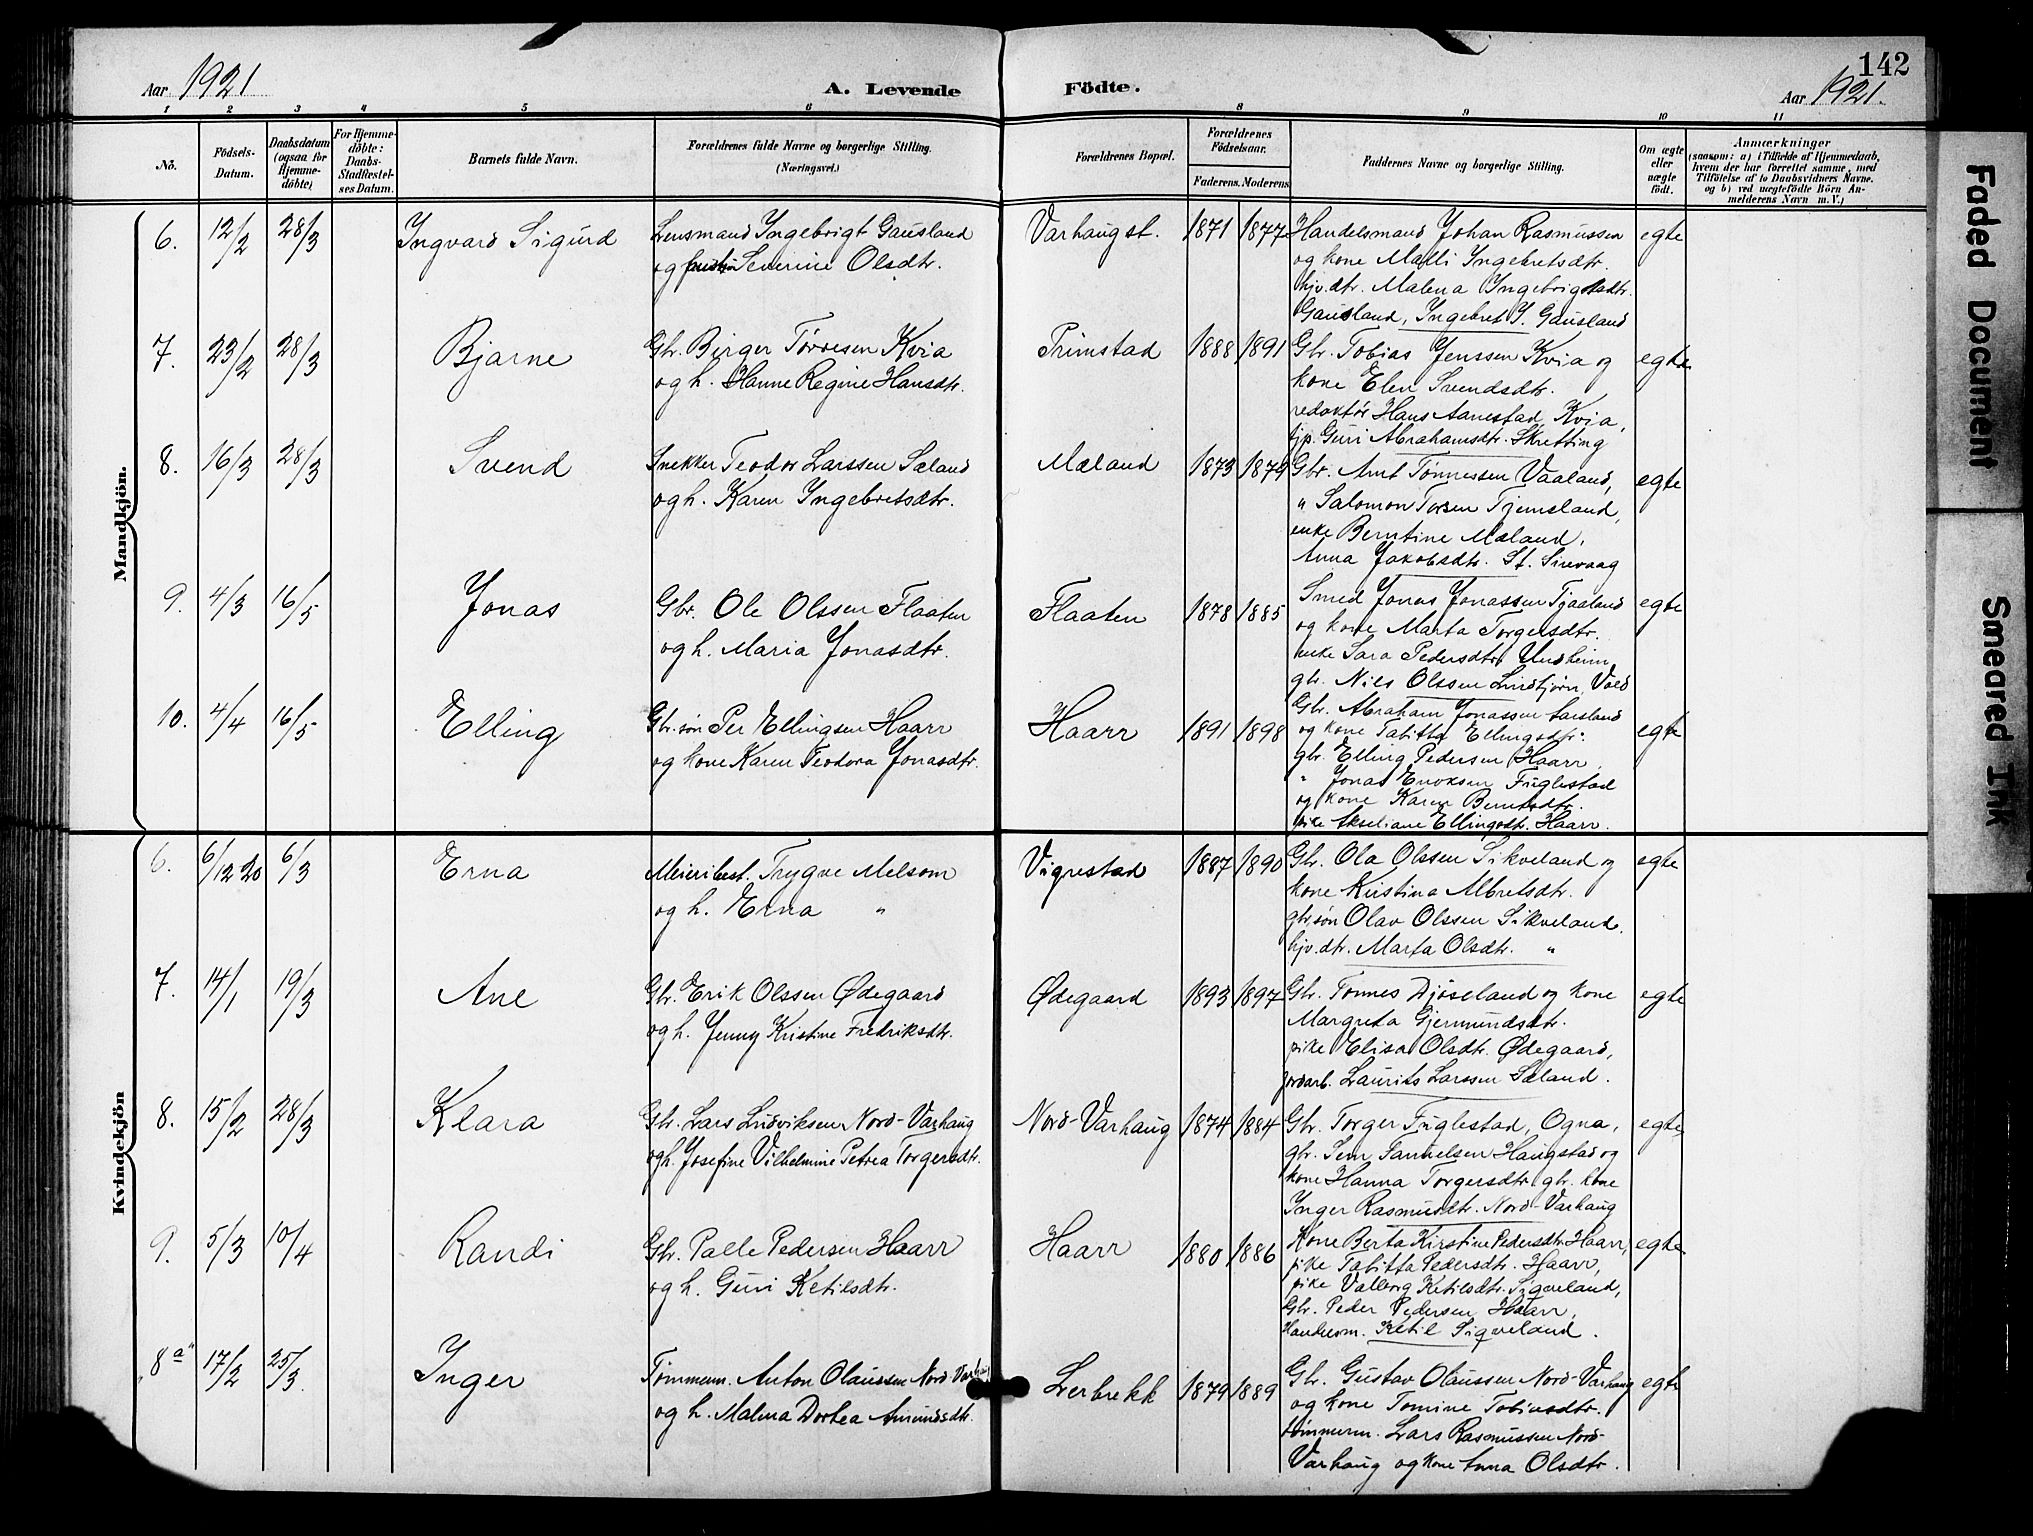 142
Aar 1921
A. Levende Födte.
Aar 1921.
1 2 3 4 5 6 8 9 10 11
No. Födsels-Datum. Daabsdatum (ogsaa for Hjemme-döbte) For Hjemme-döbte: Daabs-Stadfæstel-ses Datum. Barnets fulde Navn. Forældrenes fulde Navne og borgerlige Stilling. (Næringsvei.) Forældrenes Bopæl. Forældrenes Födselsaar. Faderens. Moderens Faddernes Navne og borgerlige Stilling. Om ægte eller uægte födt. Anmærkninger (saasom: a) i Tilfælde af Hjemmedaab, hvem der har forrettet samme, med Tilföielse af to Daabsvidners Navne. og b) ved uegtefödte Börn An-melderens Navn m.V.)
Mandkjön.
6. 12/2 28/3 Ingvard Sigurd Lensmand Ingebrigt Gausland Varhaugst. 1871 1877 Handelsmand Johan Rasmussen egte
og Severine Olsdtr. og kone Malli Ingebretsdtr.
hjv.dtr. Malena Ingebrigtsdtr.
Gausland, Ingebret I. Gausland
7. 23/2 28/3 Bjarne Gbr. Birger Tørresen Kvia Primstad 1888 1891 Gbr. Tobias Jenssen Kvia og egte
og h. Hanne Regine Hansdtr. kone Elen Svendsdtr.
redaktør Hans Aanestad, Kvia,
tjp. Guri Abrahamsdtr. Skretting
8. 16/3 28/3 Svend Snekker Teodor Larssen Sæland Mæland 1873 1879 Gbr. Arnt Tønnessen Vaaland, egte
og h. Karen Ingebretsdtr. " Salomon Torsen Tjemsland,
enke Berntine Mæland,
Anna Jakobsdtr. St. Sirevaag
9. 4/3 16/5 Jonas Gbr. Ole Olssen Flaaten Flaaten 1878 1885 Smed Jonas Jonassen Tjaaland egte
og h. Maria Jonasdtr. og kone Marta Torgersdtr.
enke Sara Pedersdtr. Undheim
gbr. Nils Olssen Lindtjørn, Vold
10. 4/4 16/5 Elling Gbr.søn Per Ellingsen Haarr Haarr 1891 1898 Gbr. Abraham Jonassen egte
og kone Karen Teodora Jonasdtr. og kone Tabitta Ellingsdtr.
gbr. Elling Pedersen Haarr
" Jonas Enoksen Fuglestad
og kone Karen Berntsdtr.
pike Akseliane Ellingsdtr. Haarr.
Kvindekjön
6. 6/12 20 6/3 Erna Meieribest. Trygve Melsom Vigrestad 1887 1890 Gbr. Ola Olssen Sikveland og egte
og h. Erna " kone Kirstina Albretsdtr.
gbr.søn Olav Olssen Sikveland.
hjv.dtr. Marta Olsdtr. "
7. 14/1 19/3 Ane Gbr. Erik Olssen Ødegaard Ødegaard 1893 1897 Gbr. Tønnes Djøseland og kone egte
og h. Jenny Kristine Fredriksdtr. Margreta Gjermundsdtr.
pike Elisa Olsdtr. Ødegaard,
jordarb. Laurits Larssen Sæland.
8. 15/2 28/3 Klara Gbr. Lars Ludviksen Nord-Varhaug Nord-Varhaug 1874 1884 Gbr. Torger Fuglestad, Ogna, egte
og h. Josefine Vilhelmine Petrea Torgersdtr. gbr. Sem Samuelsen Haugstad og
kone Hanna Torgersdtr. gbr. kone
Inger Rasmusdtr. Nord-Varhaug
9. 5/3 10/4 Randi Gbr. Palle Pedersen Haarr Haarr 1880 1886 Kone Berta Kirstine Pedersdtr. Haarr, egte
og h. Guri Ketilsdtr. pike Tabitta Pedersdtr. Haarr,
pike Valborg Ketilsdtr. Sigveland,
Gbr. Peder Pedersen Haarr,
Handelsm. Ketil Sigveland.
8a 17/2 25/3 Inger Tømmerm. Anton Olaussen Nord-Varhaug Lerbrekk 1879 1889 Gbr. Gustav Olaussen Nord-Varhaug egte
og h. Malena Dortea Amundsdtr. og kone Tomine Tobiasdtr.
tømmerm. Lars Rasmussen Nord-
Varhaug og kone Anna Olsdtr.
Faded Document
Smeared Ink